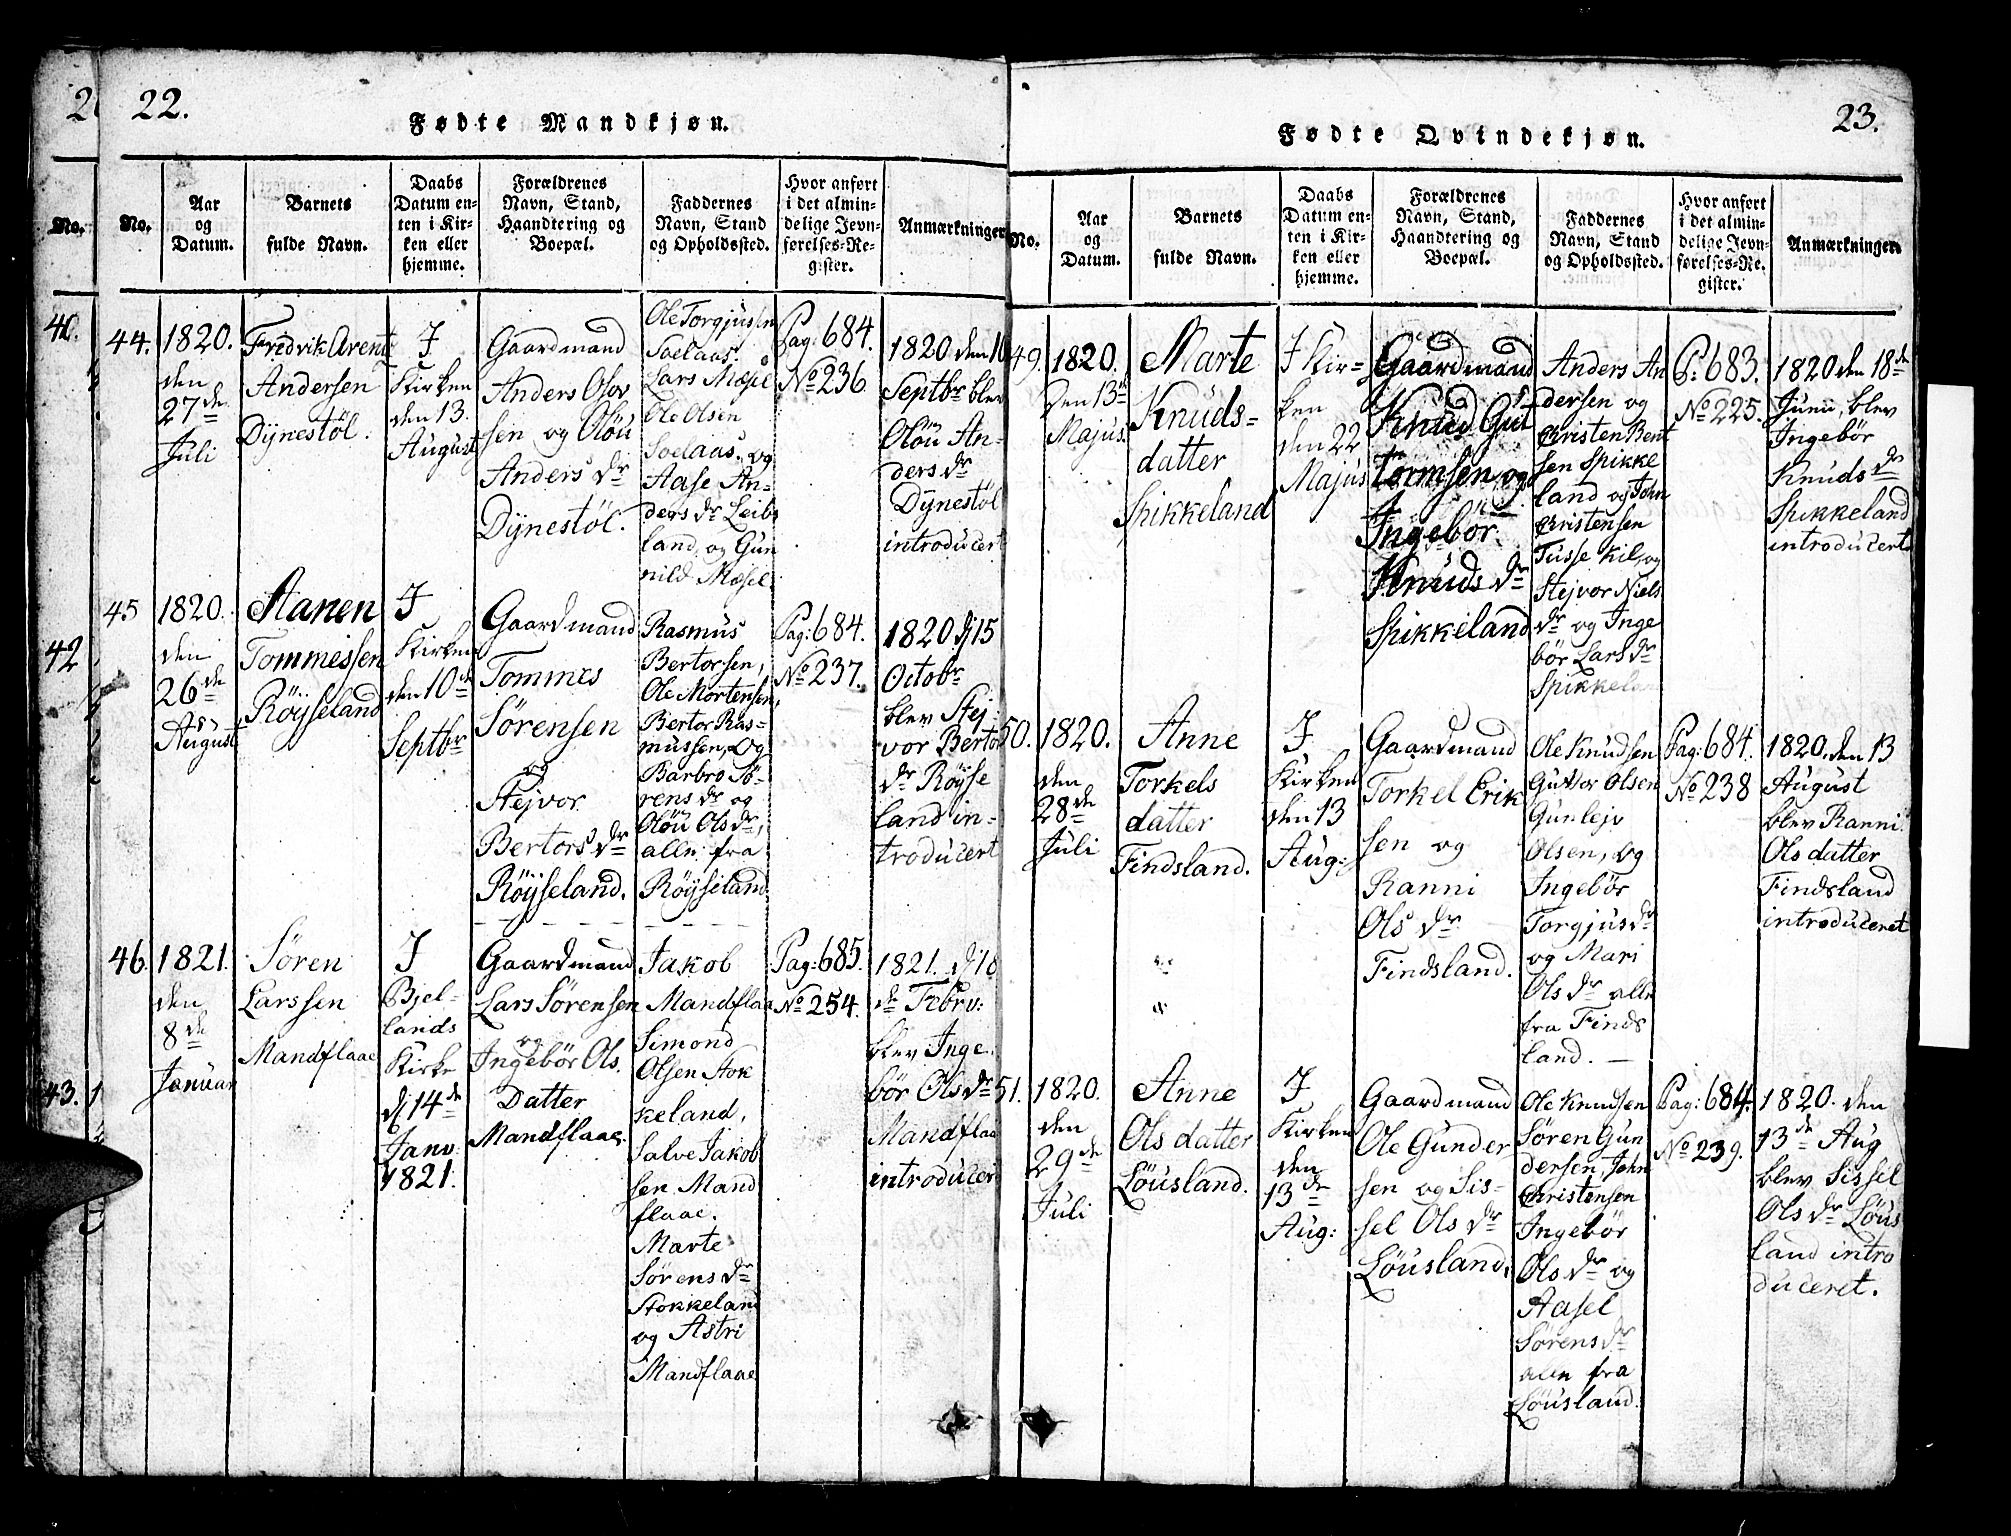 22.
Fødte Mandkjøn.
No.
Aar
og
Datum.
Barnets
fulde Navn.
Daabs
Datum en-
ten i Kir-
ken eller
hjemme.
Forældrenes
Navn, Stand,
Haandtering og
Boepæl.
Faddernes
Navn, Stand
og Opholdssted.
Hvor anført
i det almin-
delige Jevn-
førelses-Re-
gister.
Anmærkninger
44.
1820.
den
27de
Juli
Fredvik Arent
Andersen
Dÿnestöl.
I
Kirken
den 13.
August
Gaardmand
Anders Olov
sen og Olöu
Anders dr
Dÿnestöl.
Ole Torgjussen
Soelaas.
Lars Mæsel
Ole Olsen
Soelaas, og
Aase An-
ders dr Leibs
land, og Gun
nild Mæsel
Pag: 684.
No 236
1820 den 10
Septbr blev
Olöu An-
ders dr
Dÿnestöl
introducert
45
1820.
den
26de
August
Stanen
Tommessen
Röÿseland
I
Kirken
den 10de
Septbr
Gaardmand
Tommes
Sörensen
og
Stejvor
Bertors dr
Röÿseland.
Rasmus
Bertorsen,
Ole Mortensen,
Bertor Ras-
mussen, og
Barbro Sö-
rens dr og
Olöu Ols dr,
alle fra
Röÿseland.
Pag: 684.
No 237.
1820 dj 15
Octobr
blev Stej
vor Bertor
dr Röÿse
land in-
troducert
46.
1821.
den
8de
Januar
Sören
Larssen
Mandflaae
I
Bjel-
lands
Kirke
dj 14de
Janv
1821.
Gaardmand
Lars Sörensen
og
Ingebör Ols.
Datter
Mandflaae.
Jakob
Mandflaa
Simond
Olsen Stok
keland,
Salve Jakob
sen Mand
flaae.
Marte
Sörens dr
Stokkeland
og Astri
Mandflaae
Pag: 685.
No 254.
1821. dj 18
de Febrv:
blev Inge
bör Ols dr
Mandflaa
introducer
23.
Fødte Qvindekjøn.
No.
Aar
og
Datum.
Barnets
fulde Navn.
Daabs
Datum en-
ten i Kir-
ken eller
hjemme.
Forældrenes
Navn, Stand,
Haandtering og
Boepæl.
Faddernes
Navn, Stand
og Opholdssted.
Hvor anført
i det almin-
delige Jevn-
førelses-Re-
gister.
Anmærkninger.
49.
1820.
Den 13de
Majus.
Marte
Knuds-
datter
Spikkeland
I Kir-
ken
den 22
Majus
Gaardmand
Knud Gut
tormsen og
Ingebör
Knuds dr
Spikkeland
Anders An
dersen og
Kristen Bent
sen Spikke
land og John
Kristensen
Tusse kil, og
Stejvor Niels
dr og Inge
bör Lars dr
Spikkeland
P: 683.
No 225.
1820 den 18de
Junii, blev
Ingebör
Knuds dr
Spikkeland
introducert
50.
1820.
den
28de
Juli
Anne
Torkels
datter
Findsland.
I
Kirken
den 13
Aug:
Gaardmand
Torkel Erik
sen og
Ranni
Ols dr
Findsland.
Ole Knudsen
Guttor Olsen
Gunlejv
Olsen, og
Ingebör
Torgjus dr
og Mari
Ols dr alle
fra Finds
land.
Pag: 684.
No 238
1820. den 13
August
blev Ranni
Ols datter
Findsland
introduceret
51.
1820.
den
29de
Juli
Anne
Ols datter
Löusland.
I
Kirken
den
13de
Aug:
Gaardmand
Ole Gunder
sen og Sis-
sel Ols dr
Löusland,
Ole Knudsen
Sören Gun
dersen, John
Christensen
Ingebör
Ols dr og
Aasel
Sörens dr
alle fra
Löusland.
Pag: 684.
No 239.
1820. den
13de Aug
blev Sissel
Ols dr Löus
land intro
duceret.